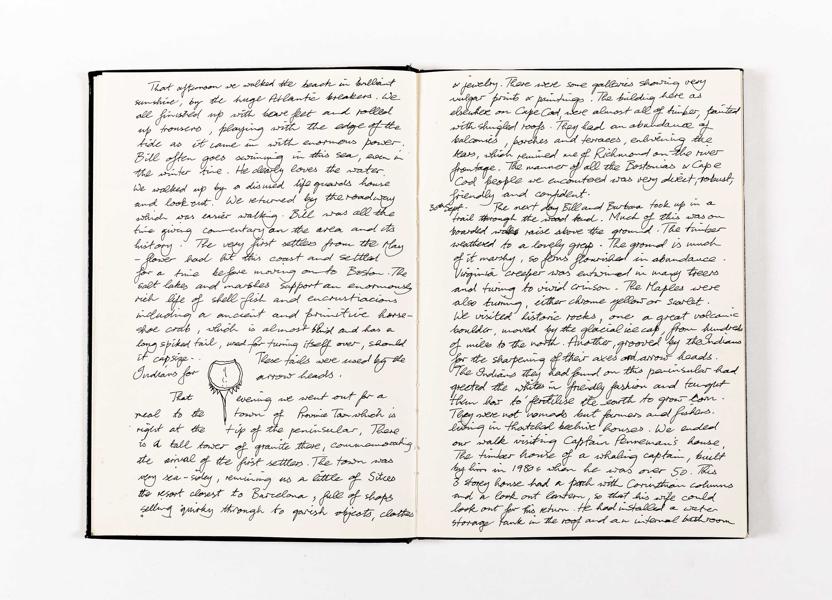 That afternoon we walked the beach in brilliant
sunshine, by the huge Atlantic breakers. We
all finished up with bare feet and rolled
up trousers, playing with the edge of the
tide as it came in with enormous power.
Bill often goes swimming in this sea, even in
the winter time. He dearly loves the water.
We walked up by a disused life guards house
and look out. We returned by the roadway
which was easier walking. Bill was all the
time giving commentary on the area and its
history. The very first settlers from the May
-flower had hit this coast and settled
for a time before moving on to Boston. The
salt lakes and marshes support an enormously
rich life of shell-fish and encrustacions
including a ancient and primitive horse-
shoe crab, which is almost blind and has a
long spiked tail, used for turing itself over, should
it capsize. These tails were used by the
Indians for arrow heads.
That evening we went out for a
meal to the town of Province Town which is
right at the tip of the peninsular, There
is a tall tower of granite there, commemorating
the arrival of the first settlers. The town was
very sea-sidey, reminding us a little of Sitges
the resort closest to Barcelona, full of shops
selling quirky through to garish objects, clothes
& jewelry. There were some galleries showing very
vulgar prints & paintings. The building here as
elsewhere on Cape Cod, were almost all of timber, painted
with shingled roofs. They had an abundance of
balconies, porches and terraces, enlivening the
which remined me of Richmond-on-the river
frontage. The manner of all the Bostonians & Cape
Cod people we encountered was very direct, robust,
friendly and confident.
30th Sept. The next day Bill and Barbara took up in a
trail through the wood land. Much of this was on
boarded walks raise above the ground. The timber
weathered to a lovely grey. The ground is much
of it marshy, so ferns flourished in abundance.
Virginia creeper was entwined in many trees
and turing to vivid crimson. The Maples were
also turning, either chrome yellow or scarlet.
We visited historic rocks, one a great volcanic
boulder, moved by the glacial ice cap, from hundreds
of miles to the north. Another, grooved by the Indians
for the sharpening of their axes and arrow heads.
The Indians they had found on this peninsular had
greeted the whites in friendly fashion and taught
them how to fertilise the earth to grow corn.
They were not nomads but farmers and fishers.
living in thatched beehive houses. We ended
our walk visiting Captain Penneman's house.
The timber house of a whaling captain, built
by him in 1980s when he was over 50. This
3 storey house had a porch with Corinthian columns
and a look out lantern, so that his wife could
look out for his return. He had installed a water
storage tank in the roof and an internal bathroom